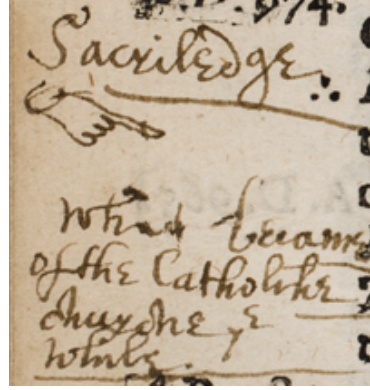 974.
Sacriledge
what became
of the Catholike
churche, ye
while.